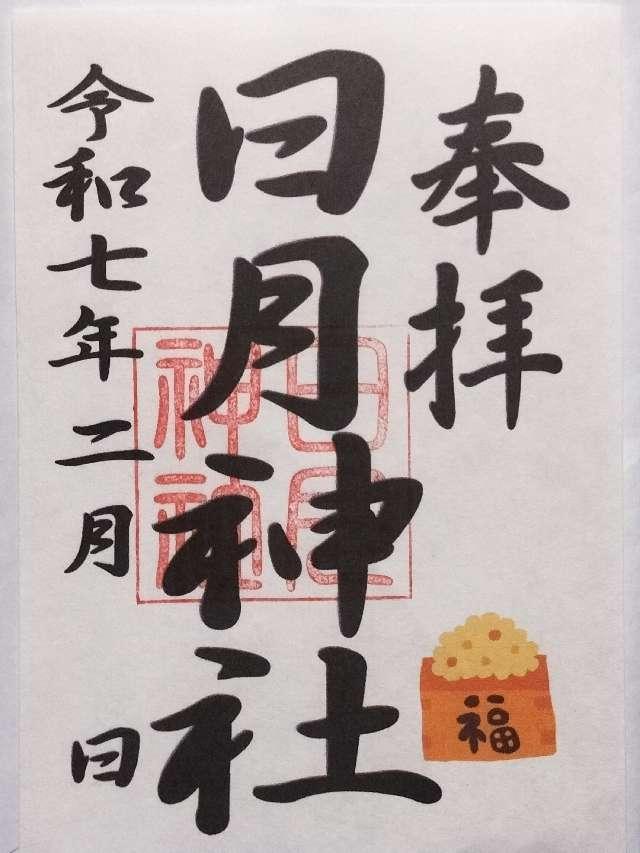 奉拝
日月神社
日月神社
令和七年二月 日
福